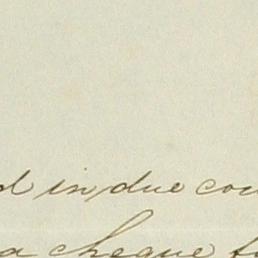 d in due cou
a cheque f